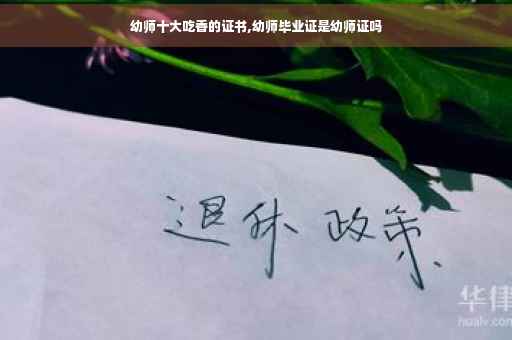 幼师十大吃香的证书,幼师毕业证是幼师证吗
退休 政策
华律
hualv.com